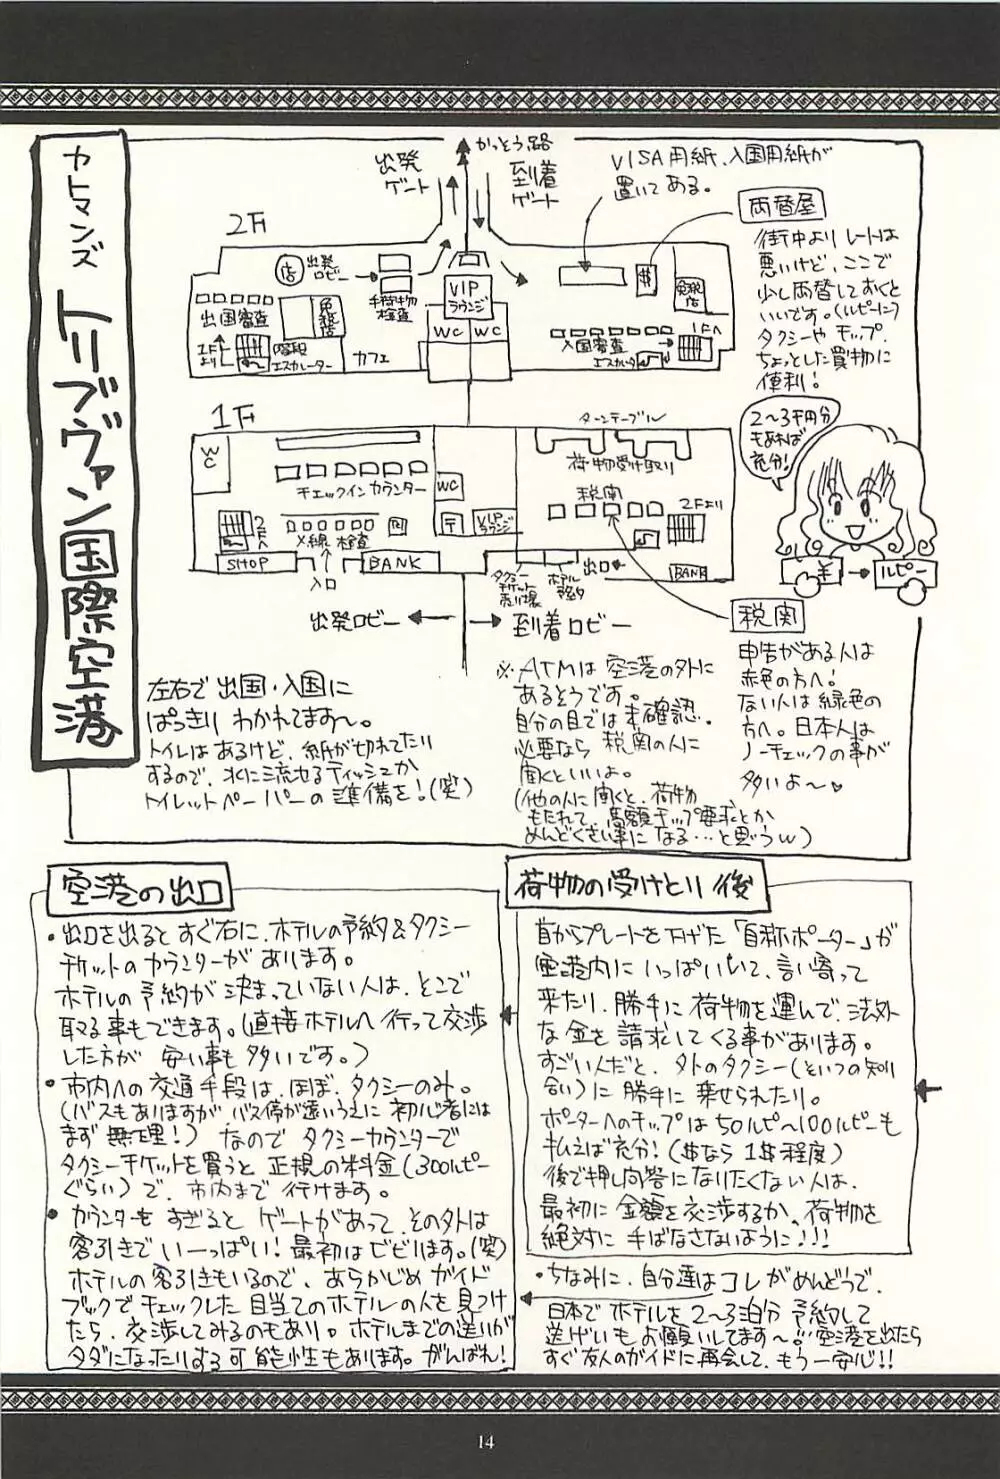 カトマンズ
トリブヴァン国際空港
かっそう路
出発
ゲート
到着
ゲート
VISA用紙、入国用紙が
置いてある。
両替屋
街中よりレートは
悪いけど、ここで
少し両替しておくと
いいです。(ルピーに)
タクシーやチップ、
ちょっとした買物に
便利!
2〜3千円分
もあれば
充分!
¥
ルピー
2F
店
出発
ロビー
手荷物
検査
VIP
ラウンジ
$
免税
店
出国審査
免税店
WC
WC
入国審査
1Fへ
1F
より
階段
エスカレーター
カフェ
エスカレータ
1F
WC
チェックインカウンター
WC
ターンテーブル
荷物受け取り
税関
2Fより
2Fへ
X線検査
〒
VIP
ラウンジ
SHOP
入口
BANK
タクシー
チケット
売り場
ホテル
予約
出口
BANK
出発ロビー
到着ロビー
税関
申告がある人は
赤色の方へ!
ない人は緑色の
方へ。日本人は
ノーチェックの事が
多いよ〜♥
左右で出国・入国に
ぱっきりわかれてます〜。
トイレはあるけど、紙が切れてたり
するので、水に流せるティッシュか
トイレットペーパーの準備を!(笑)
※ATMは空港の外に
あるそうです。
自分の目では未確認。
必要なら税関の人に
聞くといいよ。
(他の人に聞くと、荷物
もたれて、高額チップ要求とか
めんどくさい事になる…と思うw)
空港の出口
・出口を出るとすぐ右に、ホテルの予約&タクシー
チケットのカウンターがあります。
ホテルの予約が決まっていない人は、そこで
取る事もできます。(直接ホテルへ行って交渉
した方が安い事も多いです。)
・市内への交通手段は、ほぼ、タクシーのみ。
(バスもありますが、バス停が遠いうえに初心者には
まず無理!)なのでタクシーカウンターで
タクシーチケットを買うと正規の料金(300ルピー
ぐらい)で、市内まで行けます。
・カウンターもすぎるとゲートがあって、その外は
客引きでいーっぱい!最初はビビります。(笑)
ホテルの客引きもいるので、あらかじめガイド
ブックでチェックした目当てのホテルの人を見つけ
たら、交渉してみるのもあり。ホテルまでの送りが
タダになったりする可能性もあります。がんばれ!
荷物の受けとり後
首からプレートを下げた「自称ポーター」が
空港内にいっぱいいて、言い寄って
来たり、勝手に荷物を運んで、法外
な金を請求してくる事があります。
すごい人だと、外のタクシー(といつの知り
合い)に勝手に乗せられたり。
ポーターへのチップは50ルピー〜100ルピーも
払えば充分!($なら1$程度)
後で押し問答になりたくない人は、
最初に金額を交渉するか、荷物を
絶対に手ばなさないように!!!
・ちなみに、自分達はコレがめんどうで、
日本でホテルを2〜3泊分予約して
送迎もお願いしてます〜 空港を出たら
すぐ友人のガイドに再会して、もう一安心!!
14